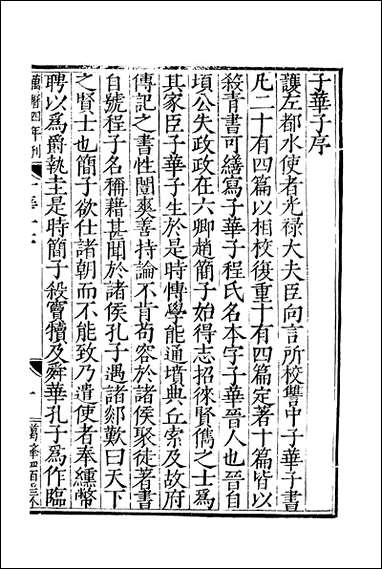 子華子序
護左都水使者光禄大夫臣向言所校讐中子華子書
凡二十有四篇以相校復重十有四篇定著十篇皆以
殺青書可繕寫子華子程氏名本字子華晉人也晉自
頃公失政政在六卿趙簡子始得志招徠賢儁之士爲
其家臣子華子生於是時愽學能通墳典丘索及故府
傳記之書性闓爽善持論不肯苟容於諸侯聚徒著書
自號程子名稱藉甚聞於諸侯孔子遇諸郯歎曰天下
之賢士也簡子欲仕諸朝而不能致乃遣使者奉纁幣
聘以爲爵執圭是時簡子殺竇犢及舜華孔子爲作臨
萬曆四年刊